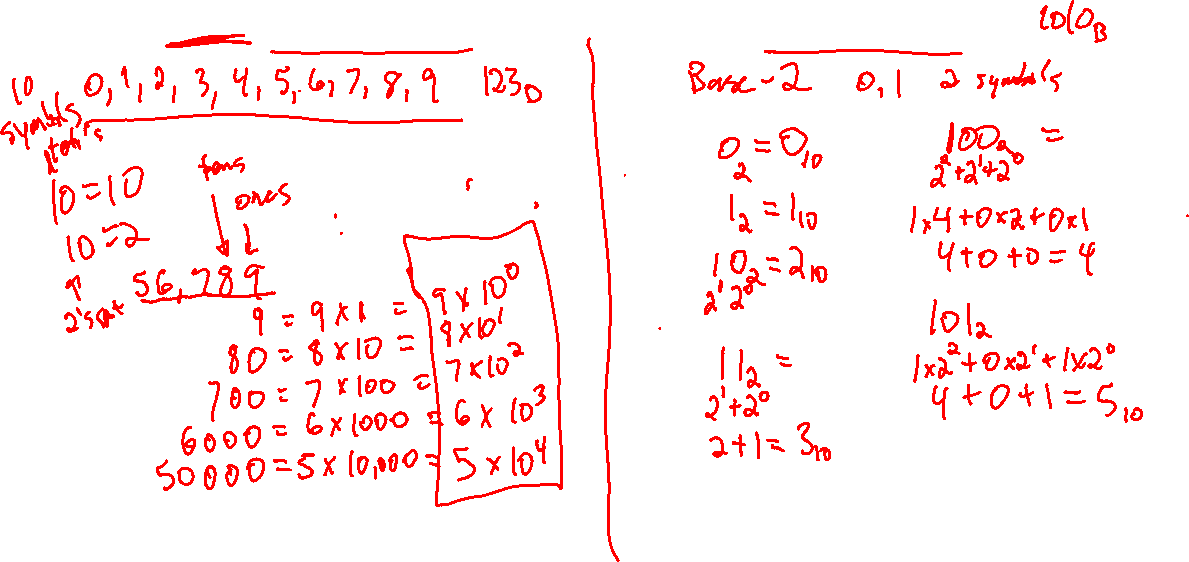 10 symbols 0, 1, 2, 3, 4, 5, 6, 7, 8, 9 123D
10=10
tens
ones
10=2
56,789
9 = 9 x 1 = 9 x 10^0
80 = 8 x 10 = 8 x 10^1
700 = 7 x 100 = 7 x 10^2
6000 = 6 x 1000 = 6 x 10^3
50000 = 5 x 10,000 = 5 x 10^4
1010B
Base-2 0, 1 2 symbols
0_2 = 0_10
1_2 = 1_10
10_2 = 2_10
2^1 2^0
11_2 =
2^1+2^0
2+1=3_10
100_2 =
2^2+2^1+2^0
1x4+0x2+0x1
4+0+0=4
101_2
1x2^2+0x2^1+1x2^0
4+0+1=5_10